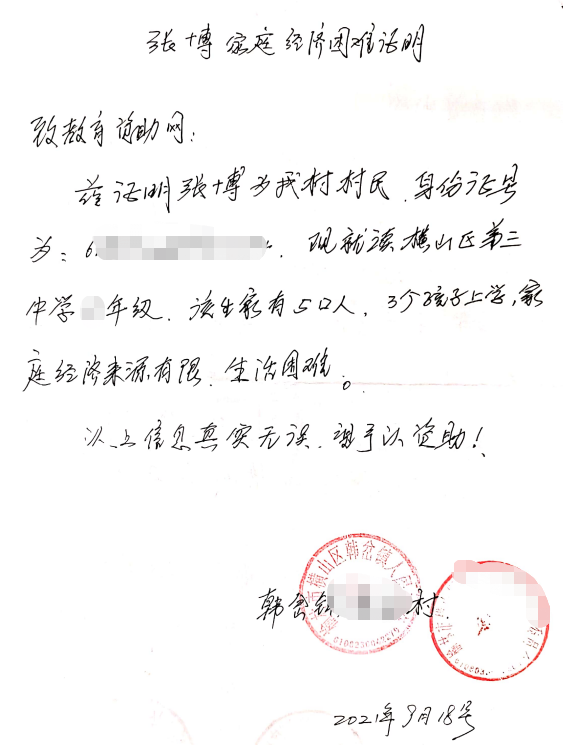 张博家庭经济困难证明
致教育资助网：
兹证明张博为我村村民，身份证号
为：6 现就读横山区第三
中学 年级，该生家有5口人，3个孩子上学，家
庭经济来源有限，生活困难。
以上信息真实无误，望予以资助！
横山区韩岔镇人
韩岔镇 村
2021年9月18号